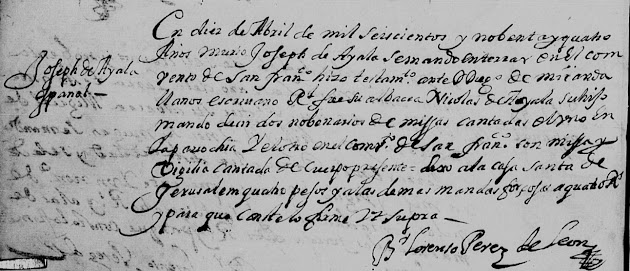 Joseph de Ayala
español
En diez de Abril de mil seiscientos y nobenta y quatro
Años murio Joseph de Ayala se mando enterrar en el com
vento de San Franco hizo testamto ante Diego de miranda
llanos escrivano Rl fue su albacea Nicolas de Ayala su hijo
mando decir dos nobenarios de missas cantadas el uno en
la parrochia y el otro en el Comto de San Franco con missa y
Vigilia cantada de cuerpo presente = dexo a la casa santa de
Jerusalem quatro pesos y a las demas mandas forsosas a quatro Rs
y para que conste lo firme Vt Supra
Br Lorenso Perez de Leon